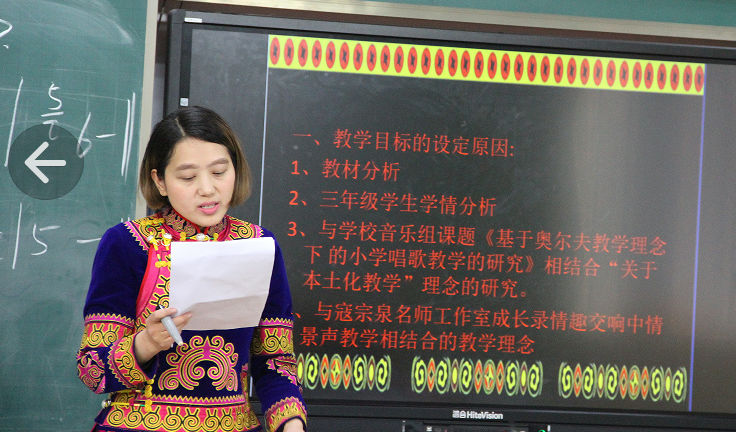 5
6-1
15-
一、教学目标的设定原因:
1、教材分析
2、三年级学生学情分析
3、与学校音乐组课题《基于奥尔夫教学理念
下 的小学唱歌教学的研究》相结合“关于
本土化教学”理念的研究。
、与寇宗泉名师工作室成长录情趣交响中情
景声教学相结合的教学理念
鸿合HiteVision